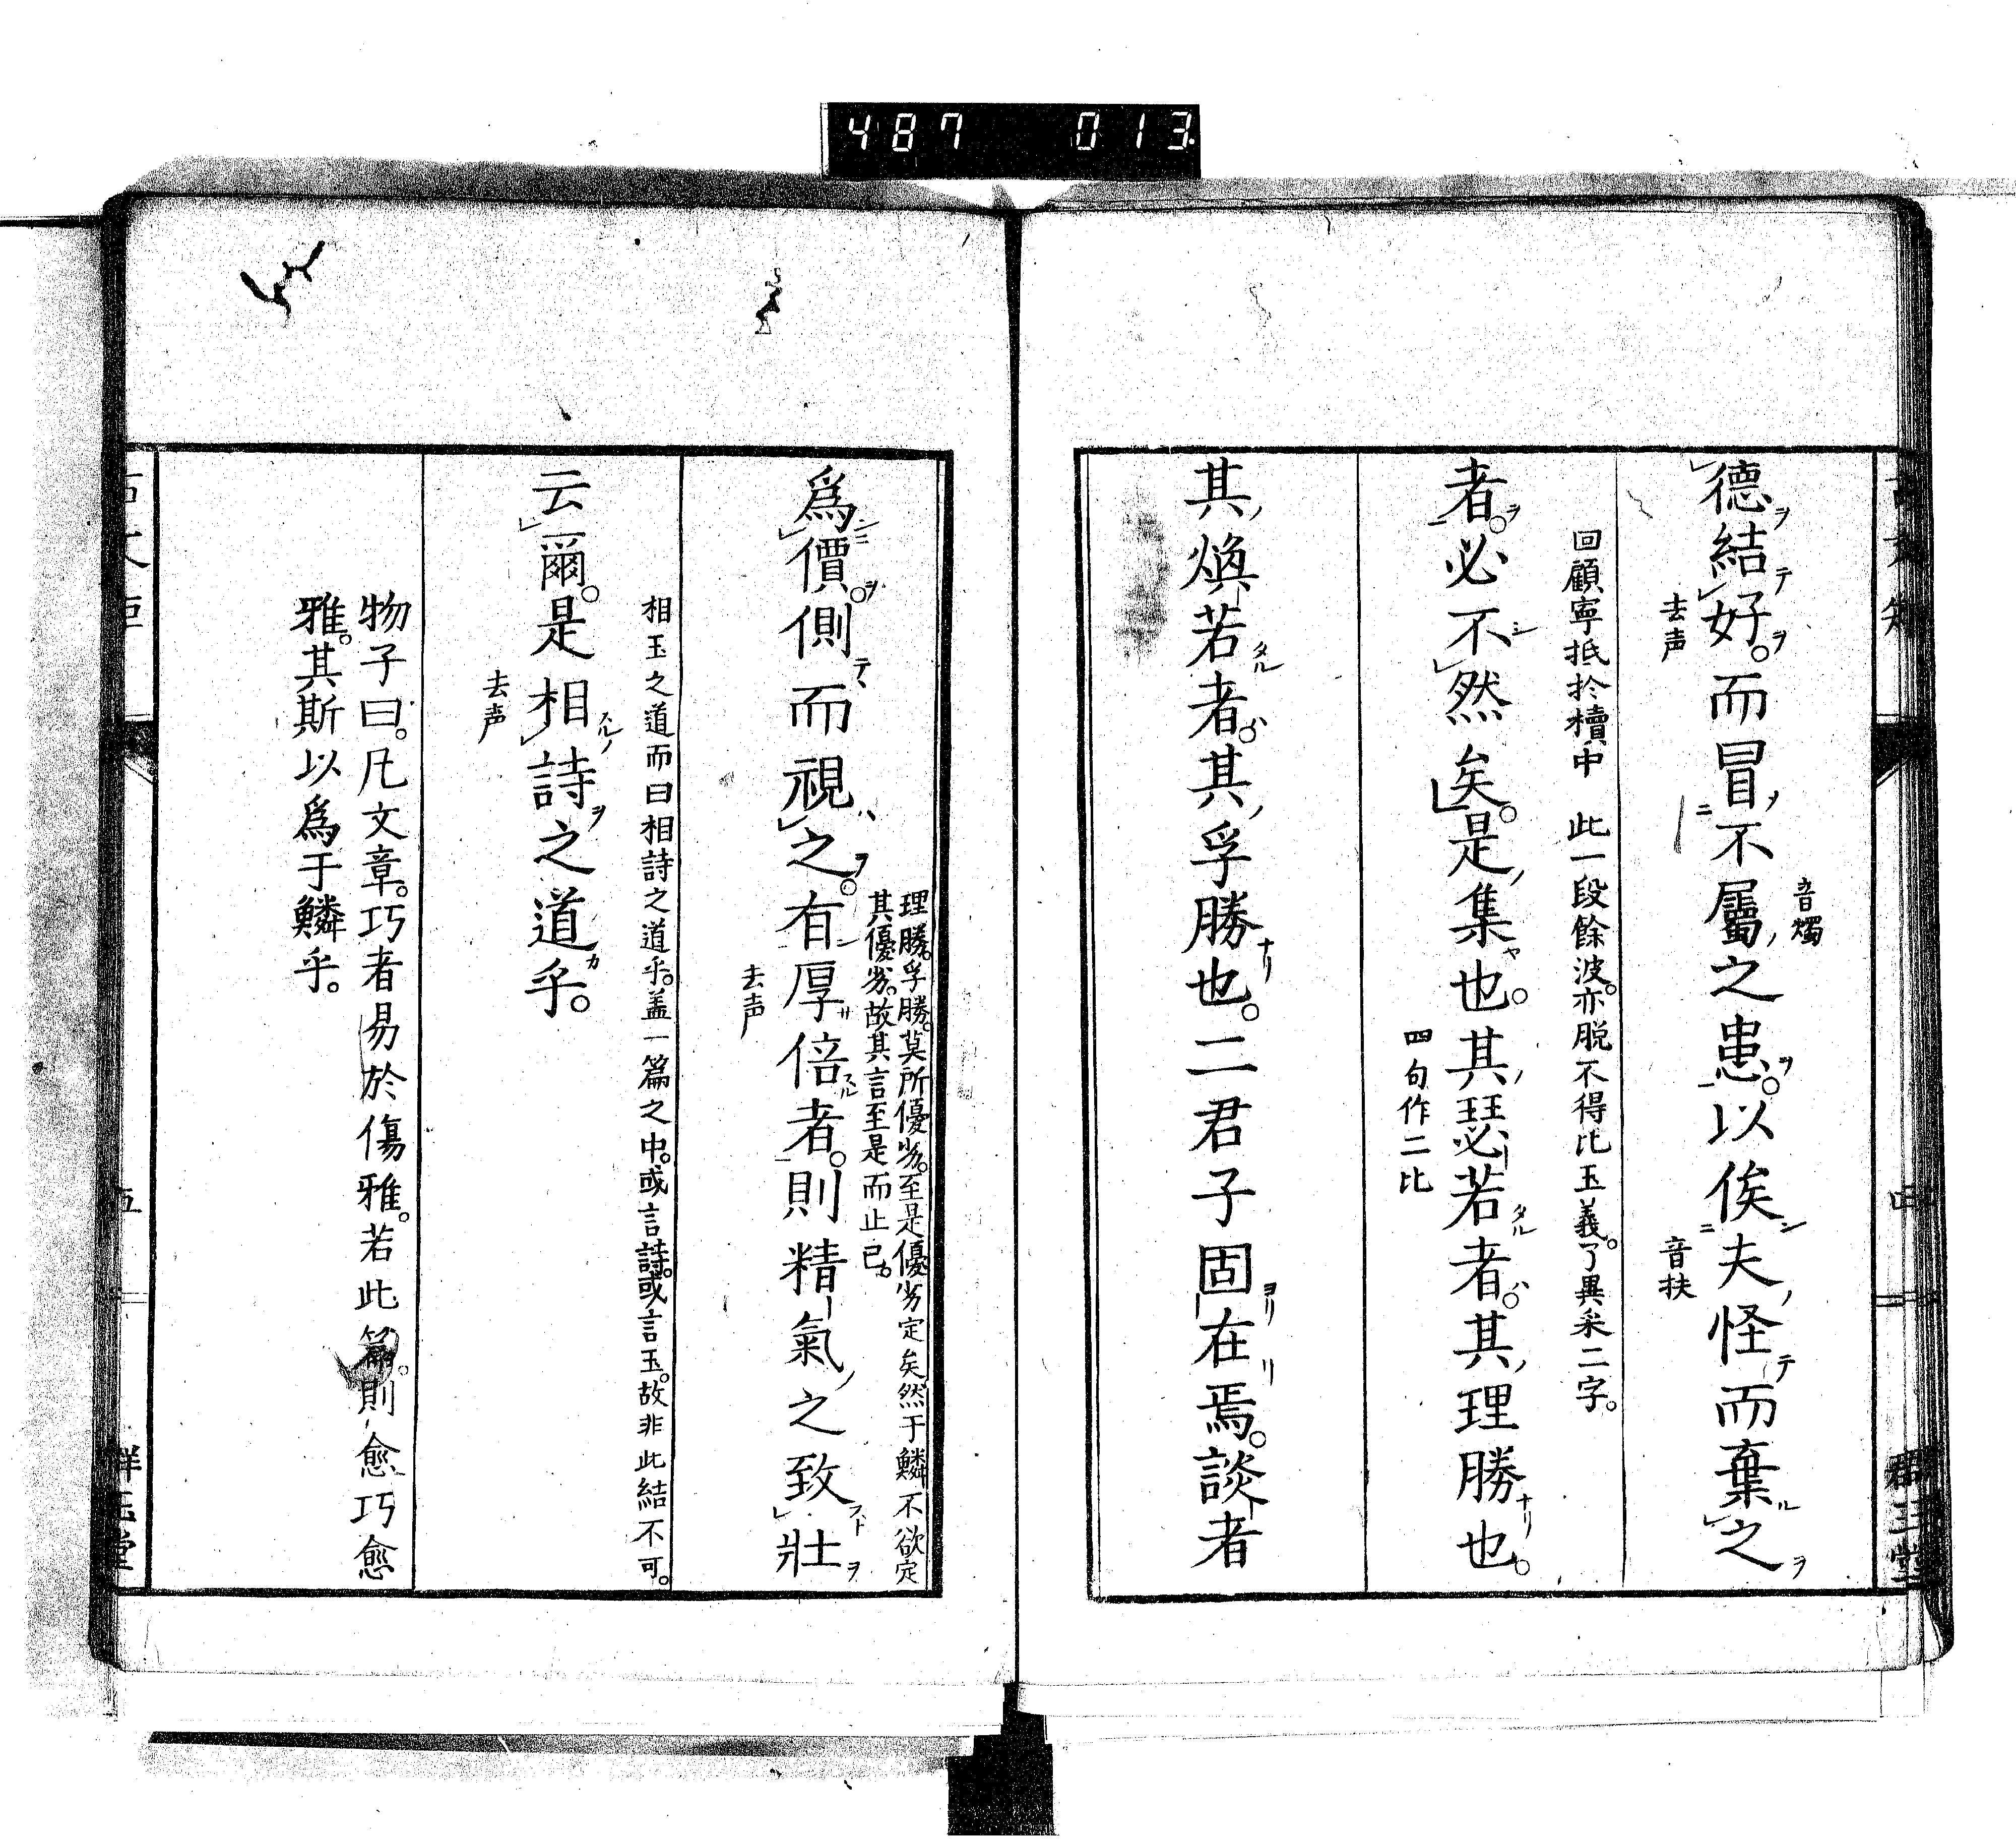 487 013
德結好。而冒不屬之患。以俟夫怪而棄之
去声
音燭
音扶
回顧寧抵於櫝中 此一段餘波。亦脱不得比玉義。了異采二字。
者。必不然矣。是集也。其瑟若者。其理勝也。
四句作二比
其煥若者。其孚勝也。二君子固在焉。談者
理勝。孚勝。莫所優劣。至是優劣定矣。然于鱗不欲定
其優劣。故其言至是而止已。
爲價。側而視之。有厚倍者。則精氣之致壯
去声
相玉之道而曰相詩之道乎。盖一篇之中。或言詩。或言玉。故非此結不可。
云爾。是相詩之道乎。
去声
物子曰。凡文章。巧者易於傷雅。若此篇。則愈巧愈
雅。其斯以爲于鱗乎。